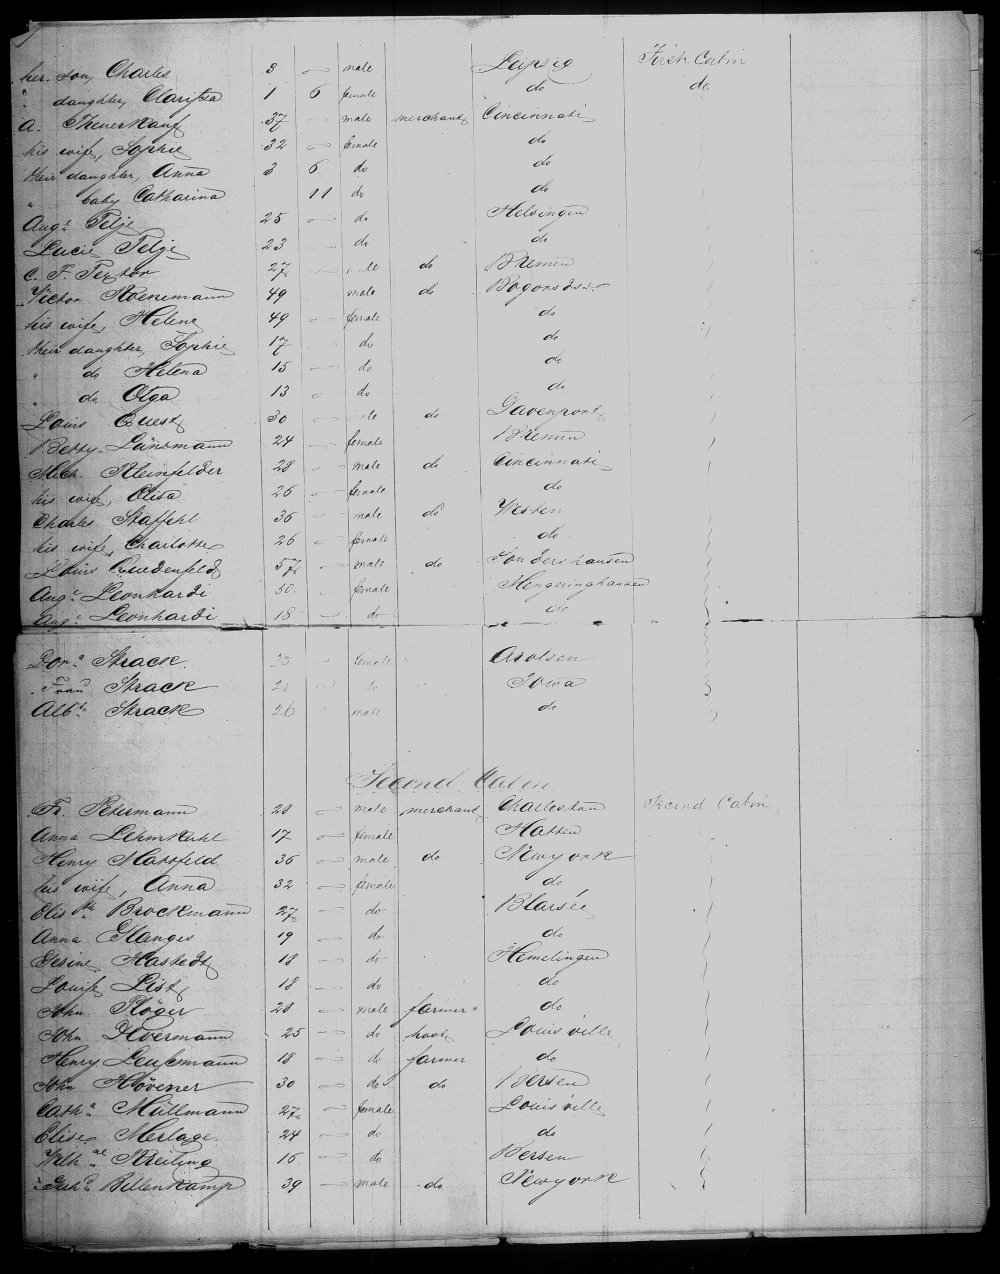 her son, Charles 3 — male Leipzig First Cabin
" daughter, Clarissa 1 6 female do do
A. Theuerkauf 37 — male merchant Cincinnati
his wife, Sophie 32 — female do
their daughter, Anna 3 6 do do
" baby Catharina 11 do do
Aug.e Telje 25 — do Helsingen
Lucie Telje 23 — do do
C. F. Textor 27 — male do Bremen
Victor Roenemann 49 — male do
his wife, Helene 49 — female do
their daughter, Sophie 17 — do do
" do Helena 15 — do do
" do Olga 13 — do do
Louis Quest 30 — male do Davenport
Betty Lünsmann 24 — female Bremen
Mich. Kleinfelder 28 — male do Cincinnati
his wife, Elisa 26 — female do
Charles Staffehl 36 — male do Westen
his wife, Charlotte 26 — female do
Louis Quedenfeld 57 — male do Sondershausen
Aug.e Leonhardi 50 — female Mengeringhausen
Aug.e Leonhardi 18 — do do
Dor.a Strack 23 — female Arolsen
Strack do Iowa
Alb.t Strack 26 male do
Second Cabin
Fr. Petermann 28 — male merchant Charleston Second Cabin
Anna Lehmkuhl 17 — female Hatten
Henry Mattfeld 36 — male do Newyork
his wife, Anna 32 — female do
Elis.th Brockmann 27 — do
Anna Glanges 19 — do do
Gesine Hastedt 18 — do Hemelingen
Louise List 18 — do do
John Plöger 28 — male farmer do
John Evermann 25 — do Louisville
Henry Leussmann 18 — do farmer do
John Hövener 30 — do do Bersen
Cath.a Müllmann 27 — female Louisville
Elise Merlage 24 — do do
Wilh.ne Kreiling 16 — do Bersen
Billenkamp 39 — male do Newyork